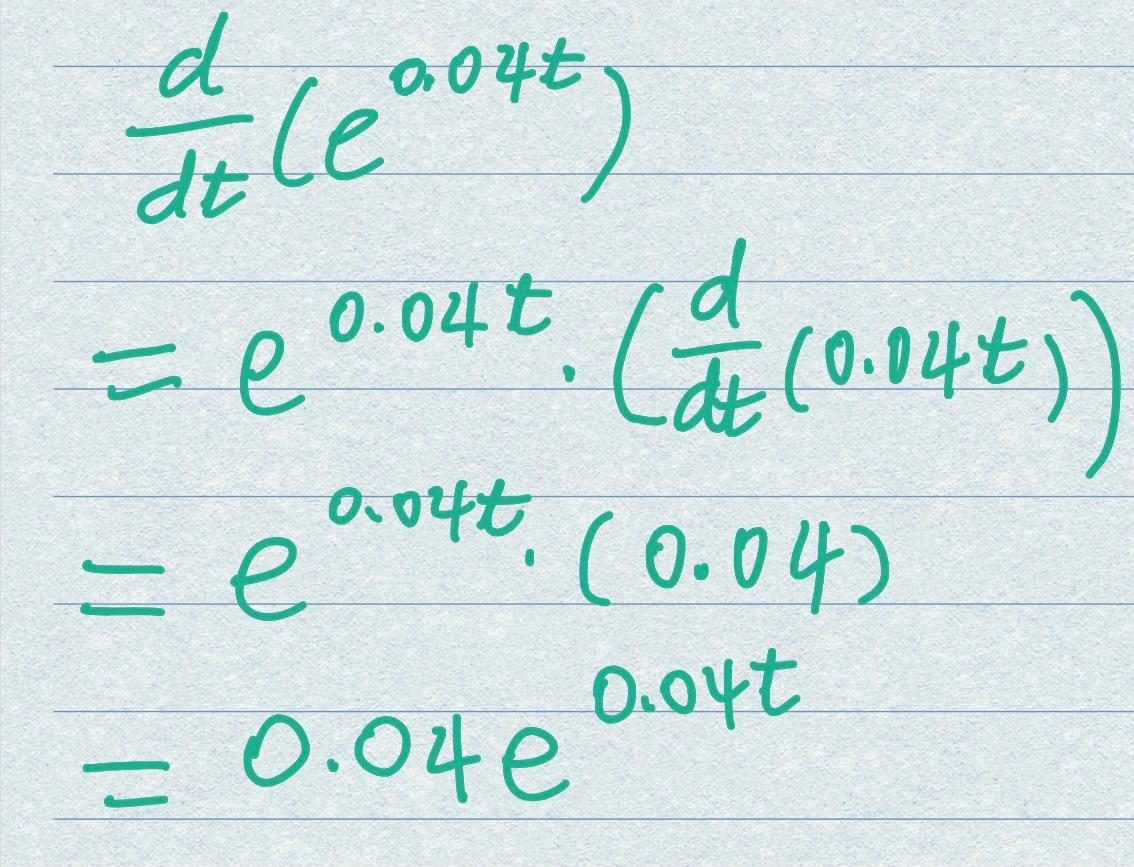 d/dt (e^{0.04t})
= e^{0.04t} · (d/dt (0.04t))
= e^{0.04t} · (0.04)
= 0.04e^{0.04t}